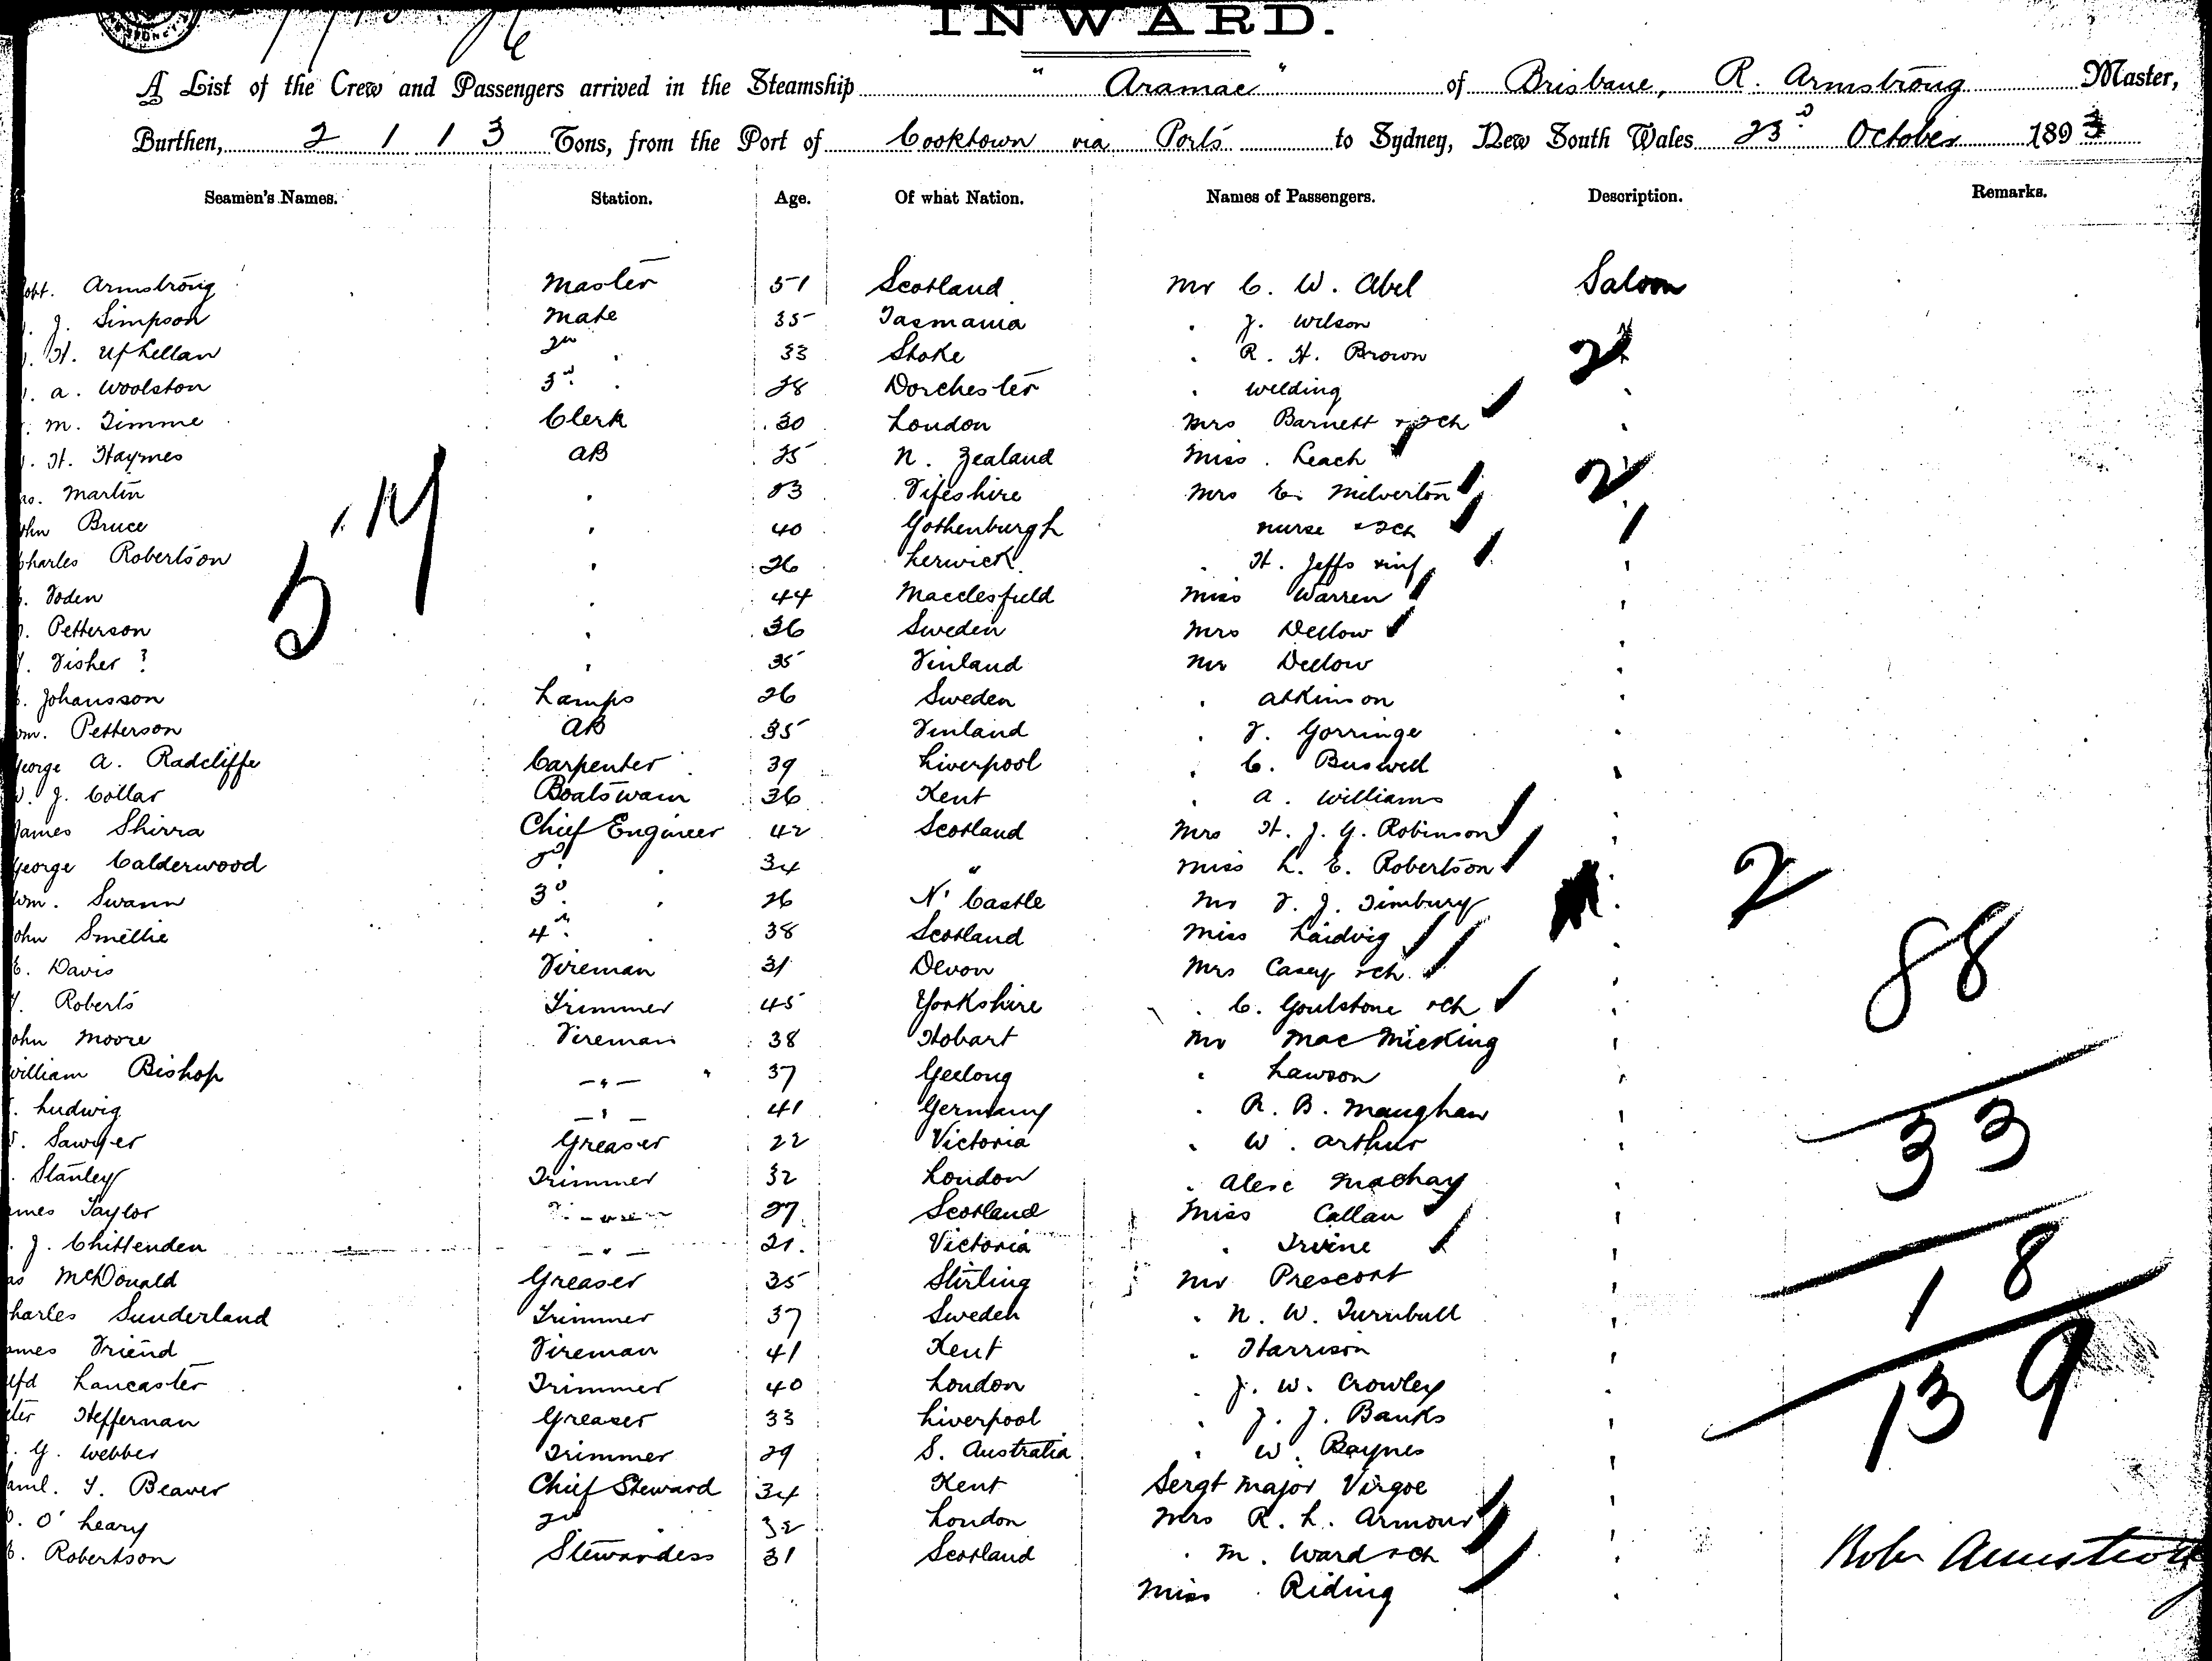 INWARD.
A List of the Crew and Passengers arrived in the Steamship "Aramac" of Brisbane, R. Armstrong Master,
Burthen, 2113 Tons, from the Port of Cooktown via Ports to Sydney, New South Wales 23d October 1893
Seamen's Names. Station. Age. Of what Nation. Names of Passengers. Description. Remarks.
Robt. Armstrong Master 51 Scotland Mr C. W. Abel Saloon
J. Simpson Mate 35 Tasmania " J. Wilson
H. Uphellan 2nd " 33 Stoke " R. H. Brown 2
A. Woolston 3rd " 28 Dorchester " Welding "
M. Timme Clerk 30 London Mrs Barnett + 2 ch "
H. Haymes AB 25 N. Zealand Miss Leach "
Martin " 53 Fifeshire Mrs E. Milverton 2
John Bruce " 40 Gothenburgh nurse + 2 ch
Charles Robertson " 26 Lerwick " H. Jeffs + inf "
Foden " 44 Macclesfield Miss Warren "
Petterson " 36 Sweden Mrs Dellow "
Fisher ? " 35 Finland Mr Dellow "
Johansson Lamps 26 Sweden " Atkinson "
Wm. Petterson AB 35 Finland " F. Gorringe "
George A. Radcliffe Carpenter 39 Liverpool " C. Buswell "
J. Collar Boatswain 36 Kent " A. Williams "
James Shirra Chief Engineer 42 Scotland Mrs H. J. G. Robinson "
George Calderwood 2d " 34 " Miss L. E. Robertson "
Wm. Swann 3d " 26 N' Castle Mr F. J. Timbury " 2
John Smellie 4th " 38 Scotland Miss Laidvig " 88
E. Davis Fireman 31 Devon Mrs Casey + ch "
Roberts Trimmer 45 Yorkshire " C. Goulstone + ch "
John Moore Fireman 38 Hobart Mr MacMicking "
William Bishop " 37 Geelong " Lawson "
Ludwig " 41 Germany " R. B. Maughan " 33
Sawyer Greaser 22 Victoria " W. Arthur "
Stanley Trimmer 32 London " Alex Mackay "
James Taylor " 27 Scotland Miss Callan "
J. Chittenden " 21 Victoria " Irvine " 18
McDonald Greaser 35 Stirling Mr Prescott "
Charles Sunderland Trimmer 37 Sweden " N. W. Turnbull "
James Friend Fireman 41 Kent " Harrison "
Alfd Lancaster Trimmer 40 London " J. W. Crowley " 139
Peter Heffernan Greaser 33 Liverpool " J. J. Banks "
G. Webber Trimmer 29 S. Australia " W. Baynes "
Saml. Y. Beaver Chief Steward 34 Kent Sergt Major Virgoe "
O'Leary 2nd " 32 London Mrs R. L. Armour "
Robertson Stewardess 31 Scotland " M. Ward + ch " Robt Armstrong
Miss Riding "